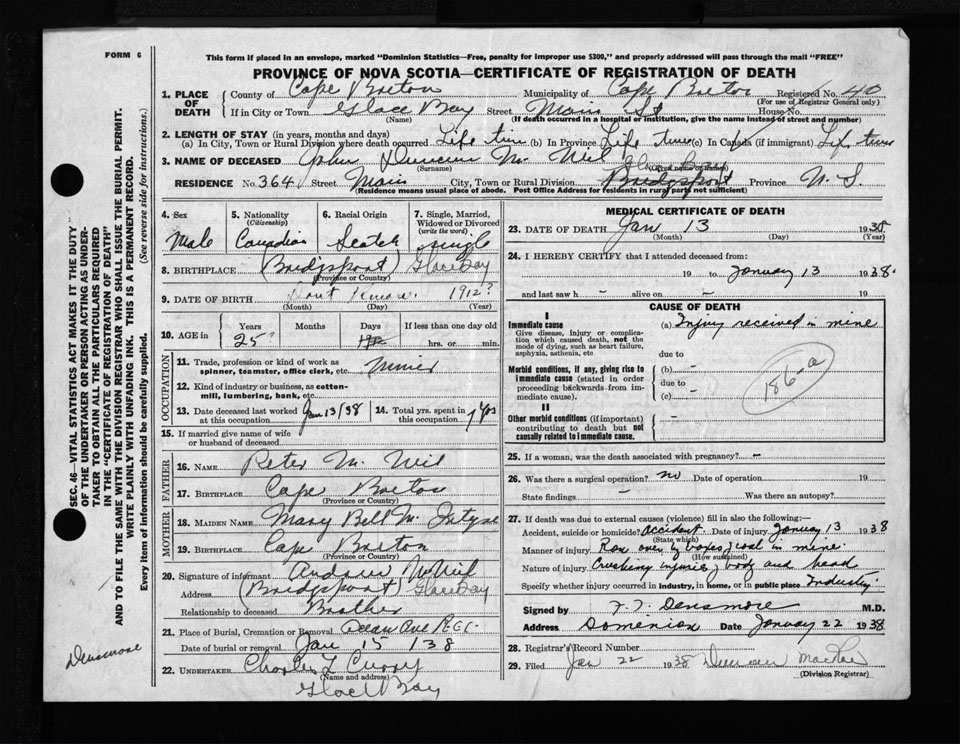 FORM 6
This form if placed in an envelope, marked "Dominion Statistics—Free, penalty for improper use $300," and properly addressed will pass through the mail "FREE"
PROVINCE OF NOVA SCOTIA—CERTIFICATE OF REGISTRATION OF DEATH
1. PLACE OF DEATH County of Cape Breton Municipality of Cape Breton Registered No. 40
(For use of Registrar General only)
If in City or Town Glace Bay Street Main St House No.
(Name) (If death occurred in a hospital or institution, give the name instead of street and number)
2. LENGTH OF STAY (in years, months and days)
(a) In City, Town or Rural Division where death occurred Life time (b) In Province Life time (c) In Canada (if immigrant) Life time
3. NAME OF DECEASED John Duncan Mc Neil
(Surname) (Given name or names)
Glace Bay
RESIDENCE No. 364 Street Main City, Town or Rural Division Bridgeport Province N. S.
(Residence means usual place of abode. Post Office Address for residents in rural parts not sufficient)
4. Sex Male
5. Nationality (Citizenship) Canadian
6. Racial Origin Scotch
7. Single, Married, Widowed or Divorced (write the word) single
8. BIRTHPLACE (Bridgeport) Glace Bay
(Province or Country)
9. DATE OF BIRTH Dont Know 1912?
(Month) (Day) (Year)
10. AGE in Years Months Days If less than one day old
25 hrs. or min.
OCCUPATION
11. Trade, profession or kind of work as spinner, teamster, office clerk, etc. Miner
12. Kind of industry or business, as cotton-mill, lumbering, bank, etc.
13. Date deceased last worked at this occupation Jan 13/38
14. Total yrs. spent in this occupation 7 yrs
15. If married give name of wife or husband of deceased
FATHER
16. NAME Peter Mc Neil
17. BIRTHPLACE Cape Breton
(Province or Country)
MOTHER
18. MAIDEN NAME Mary Bell Mc Intyre
19. BIRTHPLACE Cape Breton
(Province or Country)
20. Signature of informant Andrew McNeil
Address (Bridgeport) Glace Bay
Relationship to deceased Brother
21. Place of Burial, Cremation or Removal Ocean Ave
Date of burial or removal Jan 15 / 38
22. UNDERTAKER Charles L Curry
(Name and address)
Glace Bay
MEDICAL CERTIFICATE OF DEATH
23. DATE OF DEATH Jan 13 1938
(Month) (Day) (Year)
24. I HEREBY CERTIFY that I attended deceased from:
19 to January 13 1938.
and last saw h - alive on - 19
CAUSE OF DEATH
I
Immediate cause (a) Injury received in mine
Give disease, injury or complication which caused death, not the mode of dying, such as heart failure, asphyxia, asthenia, etc
due to
Morbid conditions, if any, giving rise to immediate cause (stated in order proceeding backwards from immediate cause). (b) -
due to -
(c)
186-a
II
Other morbid conditions (if important) contributing to death but not causally related to immediate cause. -
25. If a woman, was the death associated with pregnancy? -
26. Was there a surgical operation? no Date of operation 19
State findings - Was there an autopsy?
27. If death was due to external causes (violence) fill in also the following:—
Accident, suicide or homicide? Accident. Date of injury January 13 1938
(State which)
Manner of injury Ran over by boxes, coal in mine
(How sustained)
Nature of injury Crushing injuries, body and head
Specify whether injury occurred in industry, in home, or in public place Industry
Signed by F. T. Densmore M.D.
Address Dominion Date January 22 1938
28. Registrar's Record Number
29. Filed Jan 22 1938 Duncan MacRae
(Division Registrar)
SEC. 46—VITAL STATISTICS ACT MAKES IT THE DUTY OF THE UNDERTAKER OR PERSON ACTING AS UNDERTAKER TO OBTAIN ALL THE PARTICULARS REQUIRED IN THE "CERTIFICATE OF REGISTRATION OF DEATH" AND TO FILE THE SAME WITH THE DIVISION REGISTRAR WHO SHALL ISSUE THE BURIAL PERMIT.
WRITE PLAINLY WITH UNFADING INK. THIS IS A PERMANENT RECORD.
Every item of information should be carefully supplied. (See reverse side for instructions.)
Densmore